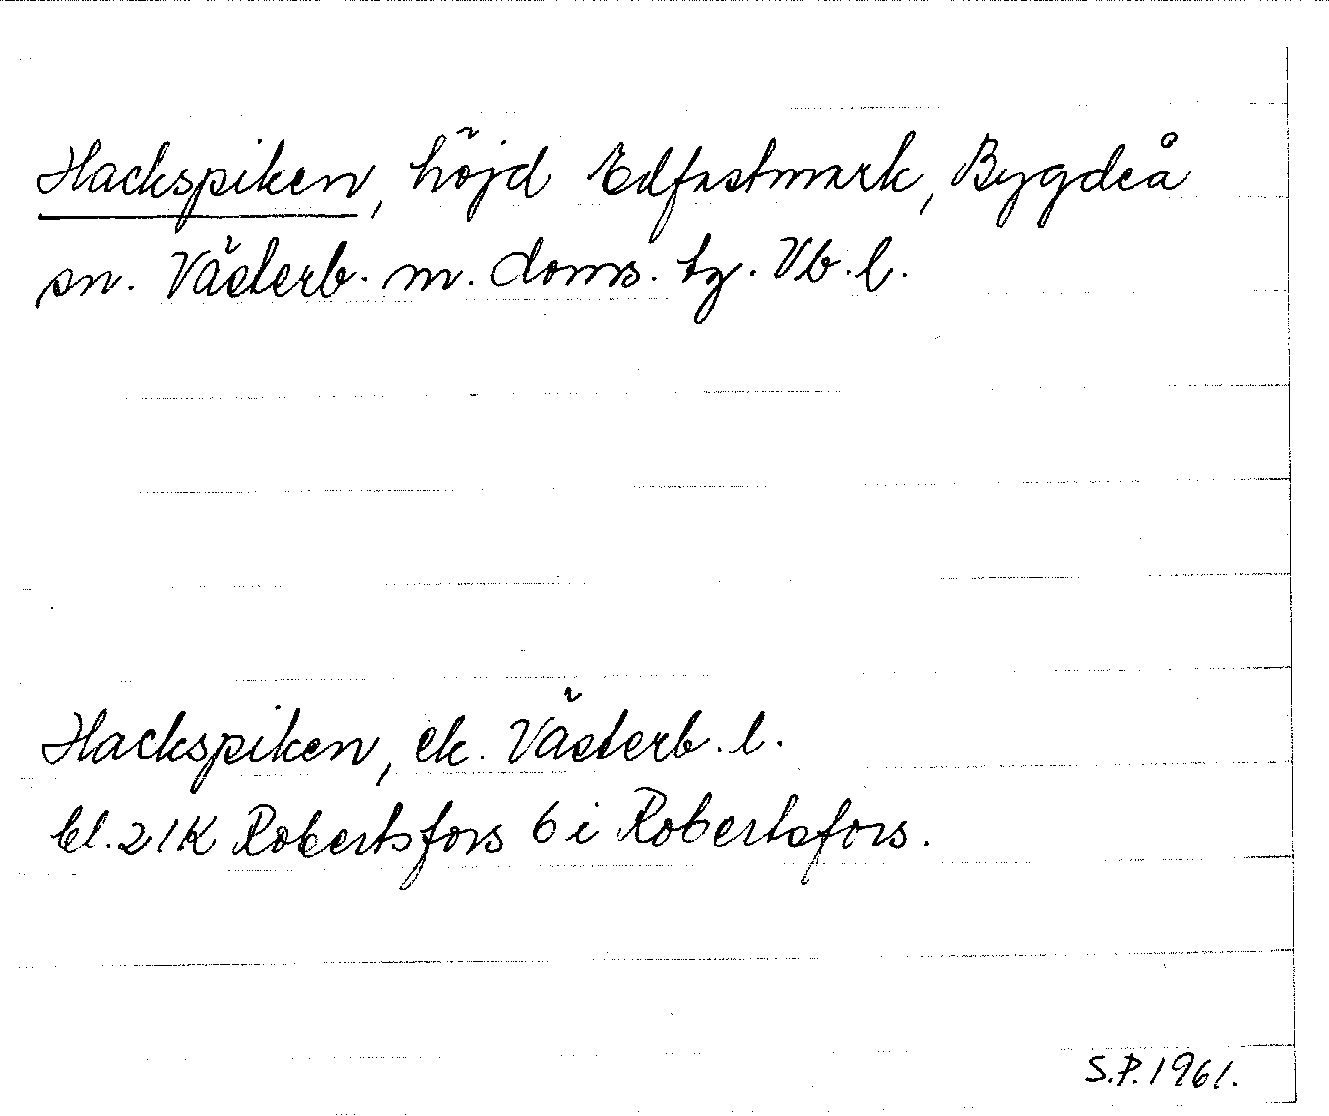 Hackspiken, höjd Edfastmark, Bygdeå
sn. Västerb. m. doms. tg. Vb. l.
Hackspiken, ek. Västerb. l.
bl. 21K Robertsfors 6 i Robertsfors.
S.P. 1961.